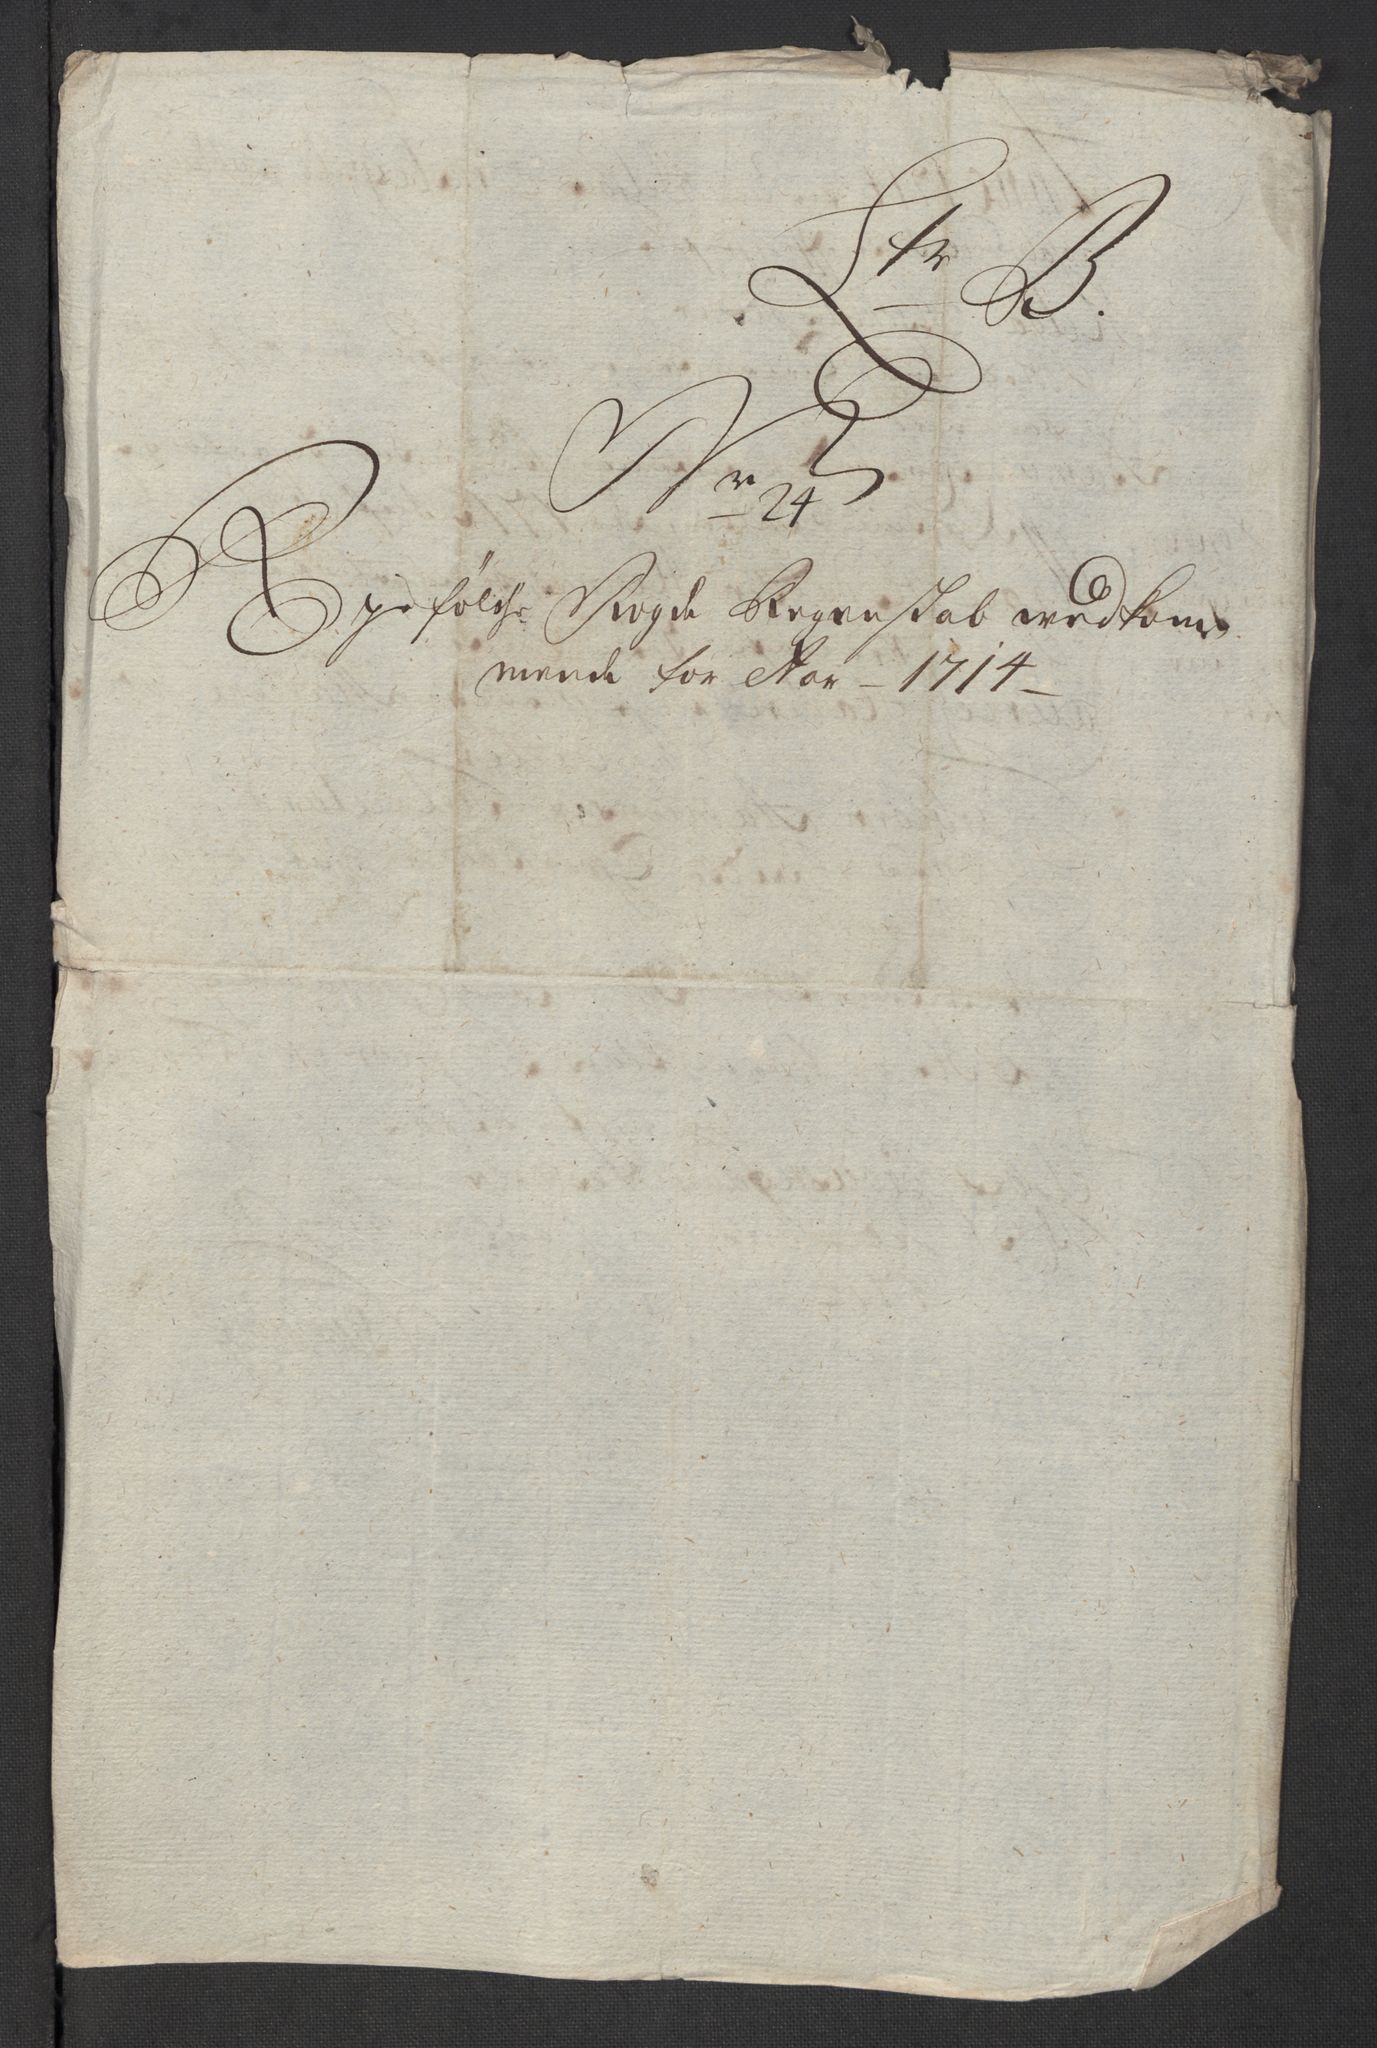 Ltr B.
Nr 24
Ryefylche Fogde Regenskab vedkom-
mende for Aar - 1714 -